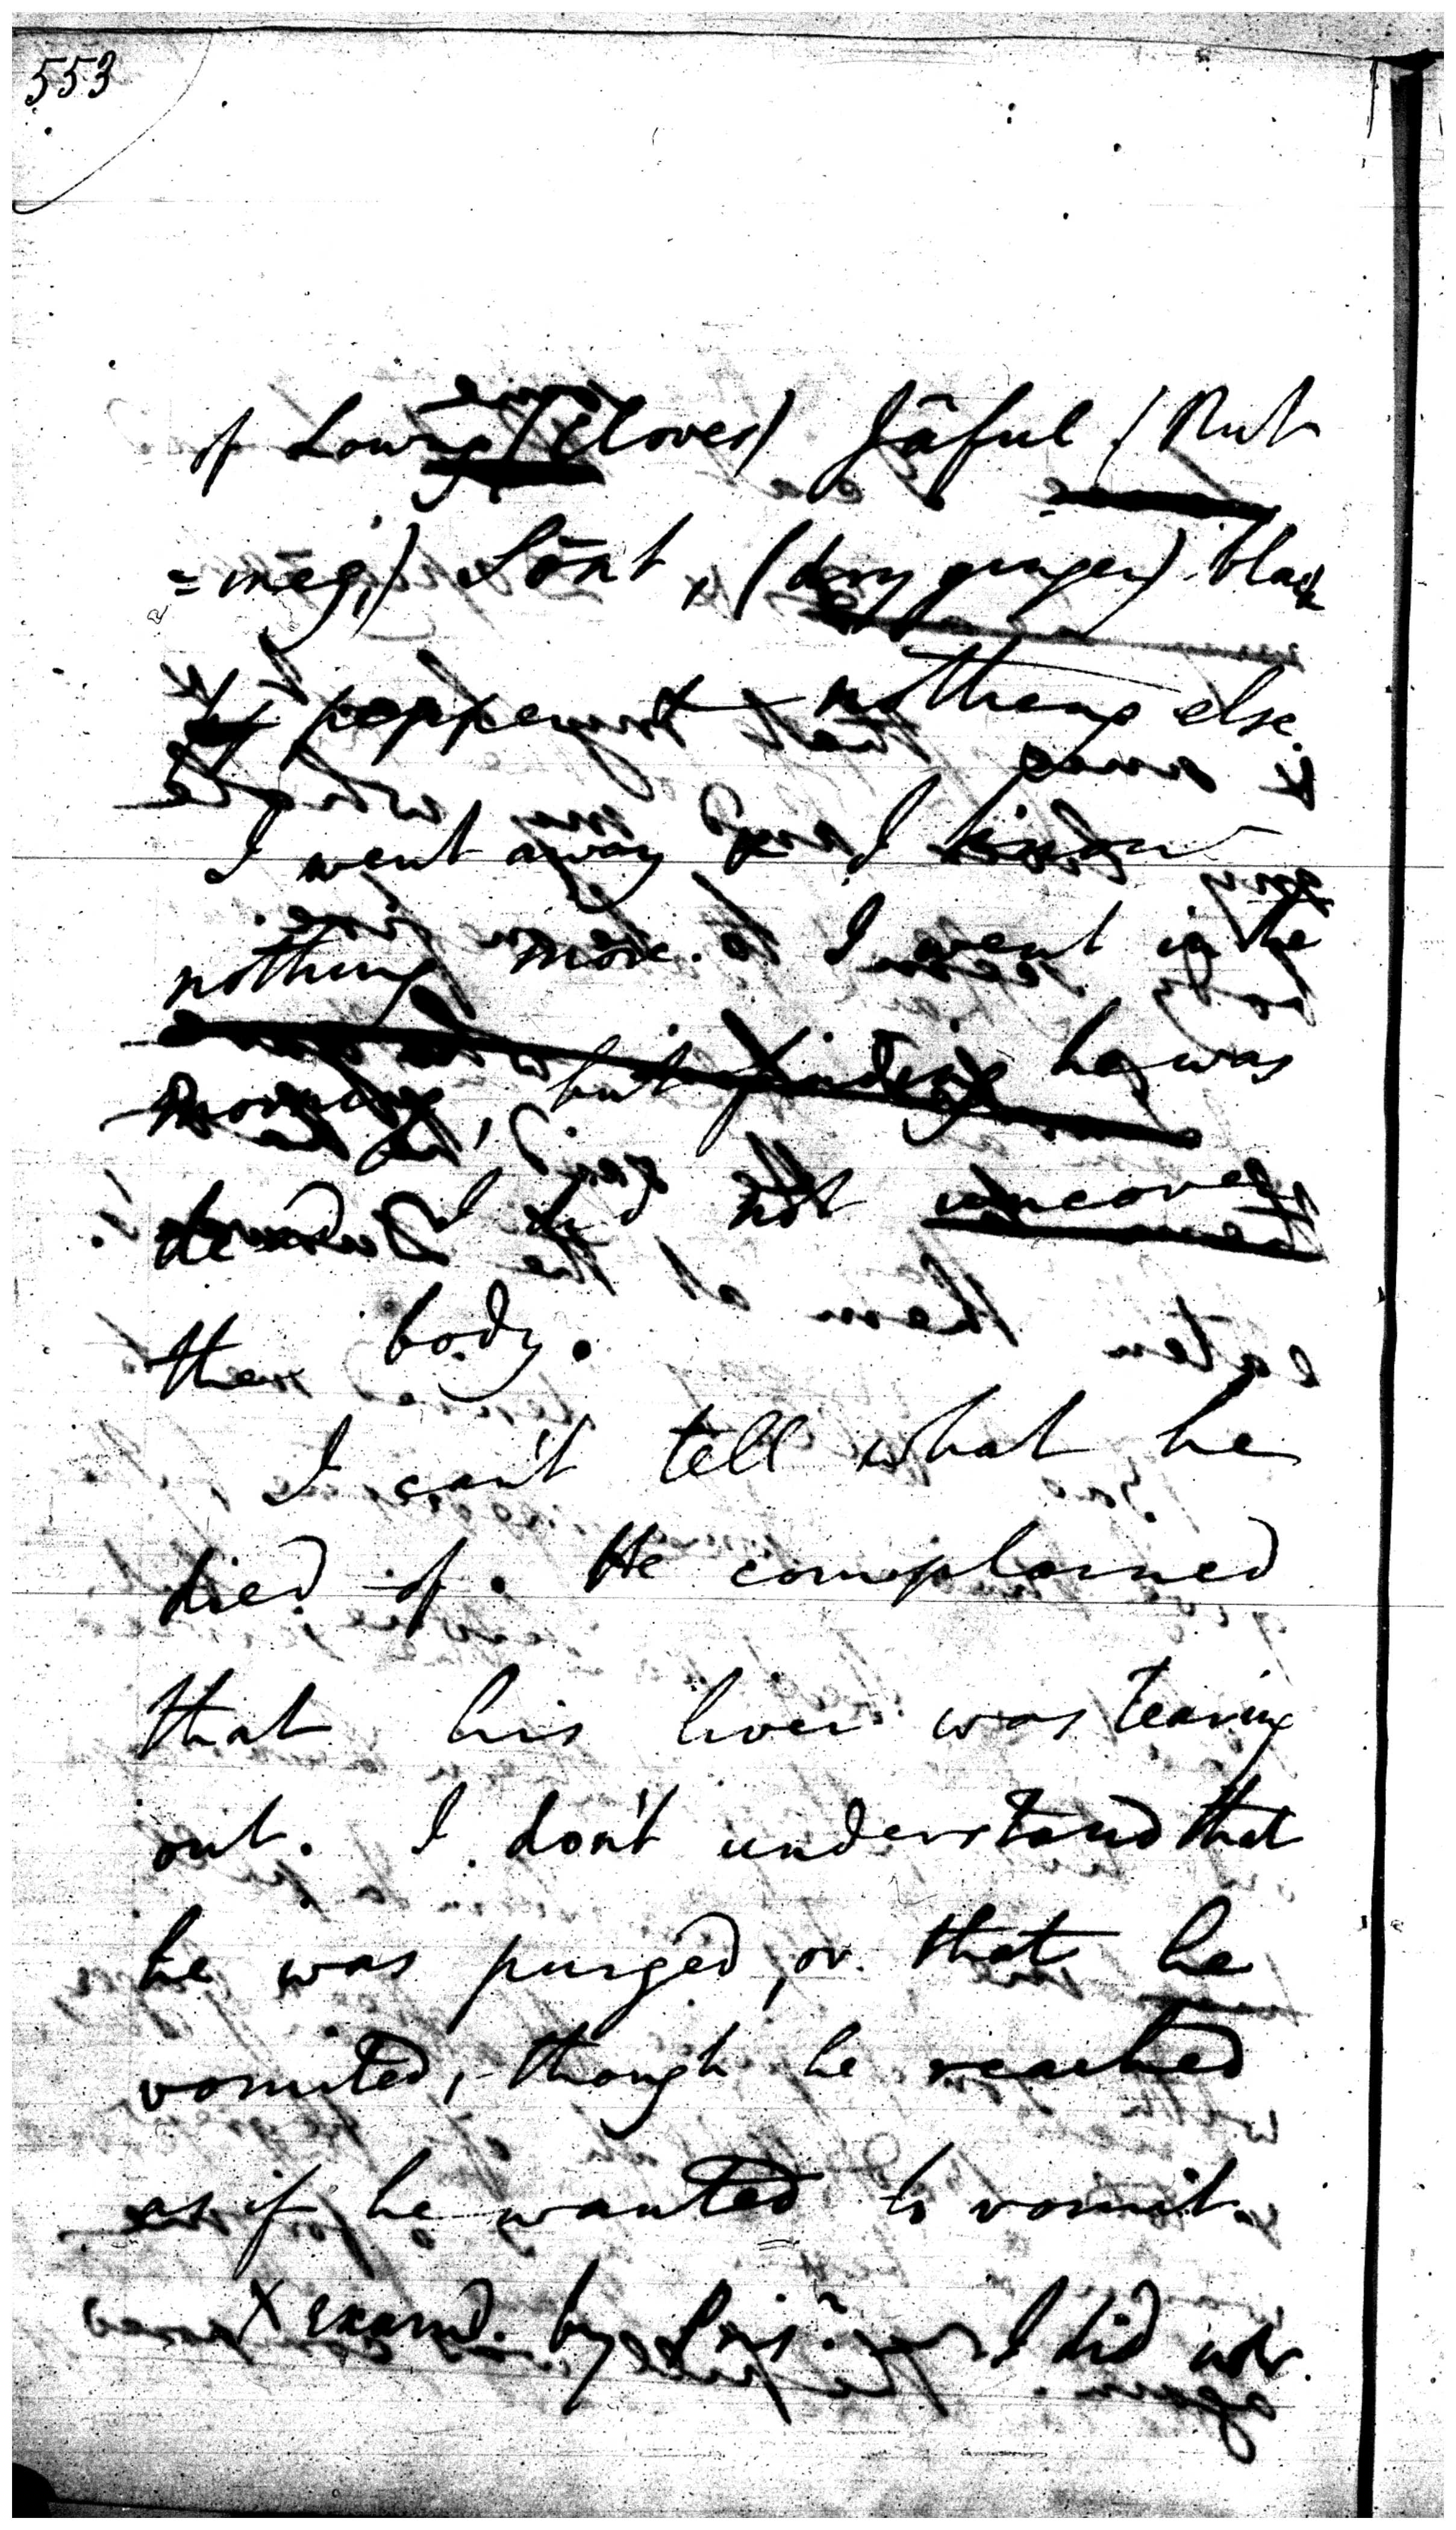 553
of Lowng (Cloves) Jāful (Nut
=meg,) Sōnt, (dry ginger) black
pepper — nothing else.
I went away and I know
nothing more. I went in the
morning, but finding he was
dead I did not uncover
the body.
I can't tell what he
died of. He complained
that his liver was tearing
out. I don't understand that
he was purged, or that he
vomited, though he reached
as if he wanted to vomit.
X examd. by I did not